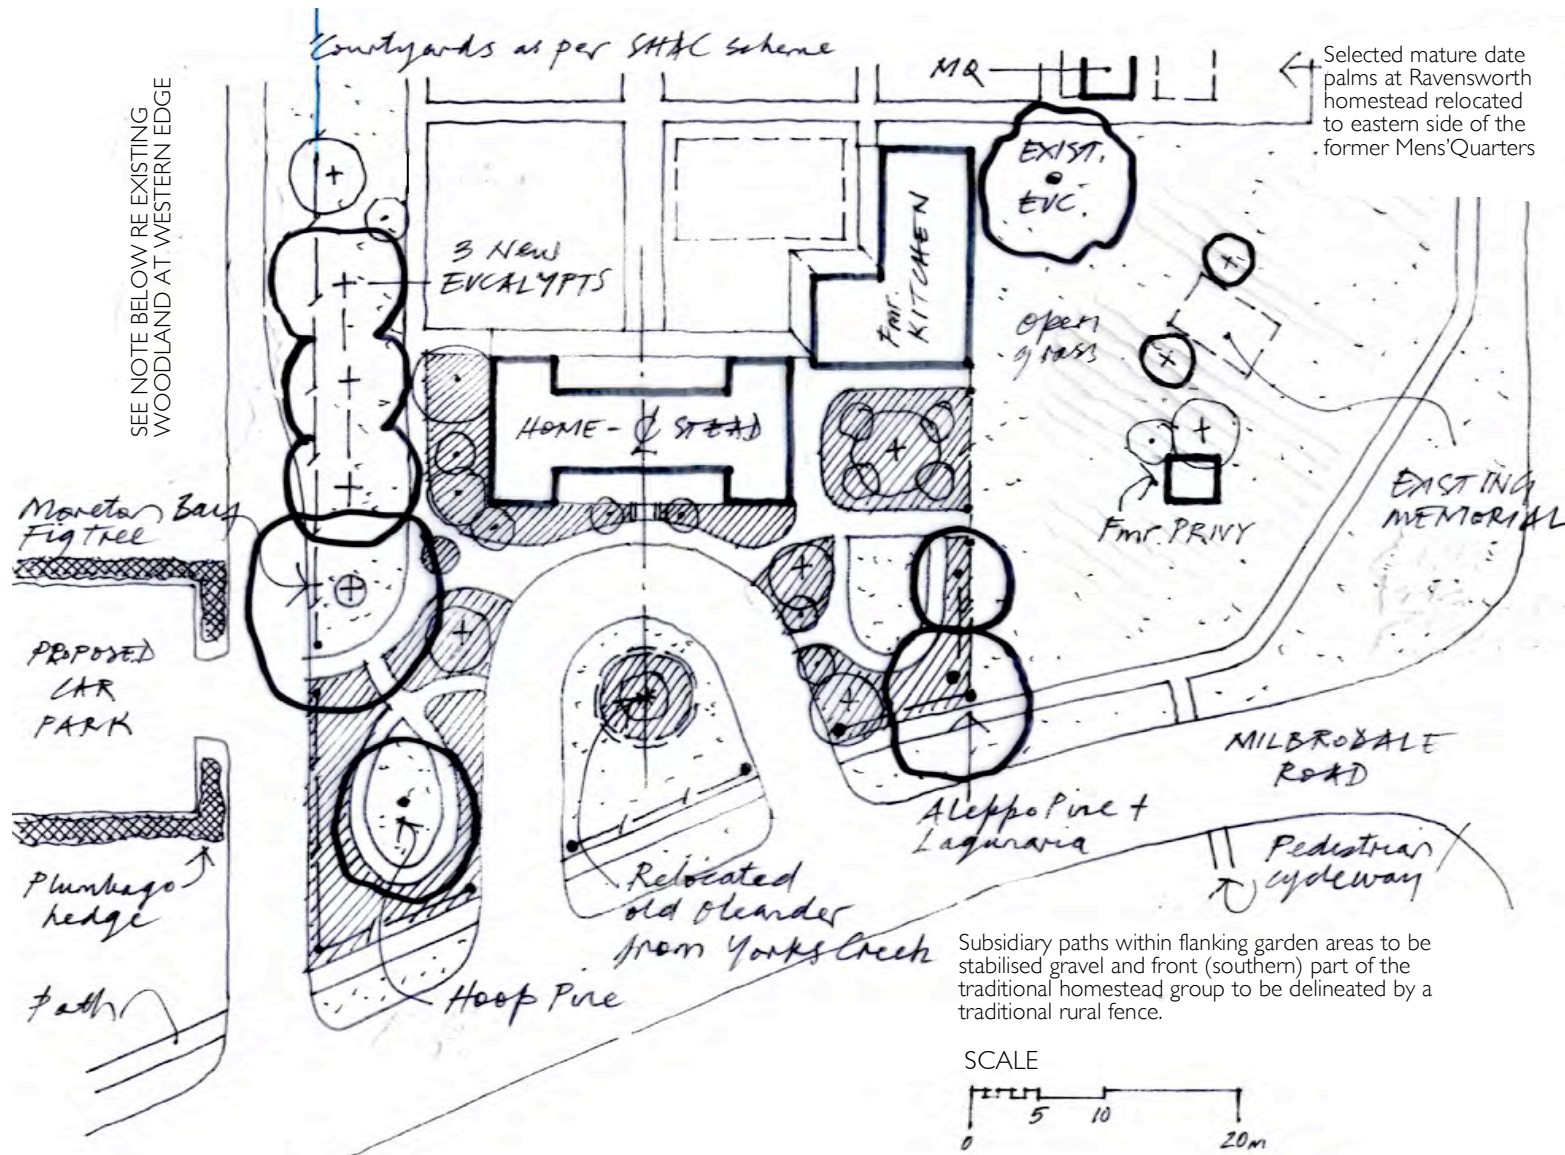 Courtyards as per SHAC scheme
MQ
Selected mature date
palms at Ravensworth
homestead relocated
to eastern side of the
former Mens'Quarters
SEE NOTE BELOW RE EXISTING
WOODLAND AT WESTERN EDGE
EXIST.
EUC.
3 New
EUCALYPTS
Fmr.
KITCHEN
open
grass
HOME-
STEAD
Fmr. PRIVY
EXISTING
MEMORIAL
Moreton Bay
Fig Tree
PROPOSED
CAR
PARK
MILBRODALE
ROAD
Aleppo Pine +
Lagunaria
Pedestrian/
cycleway
Plumbago
hedge
Relocated
old Oleander
from Yorks Creek
Hoop Pine
Path
Subsidiary paths within flanking garden areas to be
stabilised gravel and front (southern) part of the
traditional homestead group to be delineated by a
traditional rural fence.
SCALE
5 10
0 20m